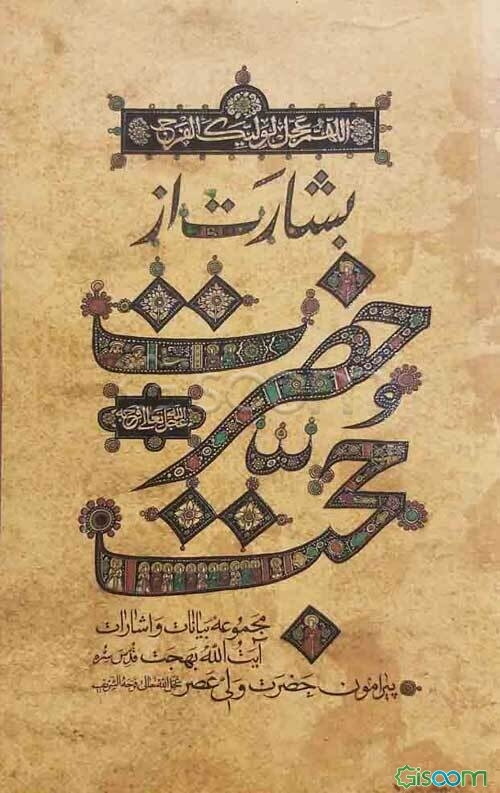 اللهم عجل لولیک الفرج
بشارت از
حضرت
عجل الله تعالی فرجه
حجت
مجموعه بیانات و اشارات
آیت الله بهجت قدس سره
پیرامون حضرت ولی عصر عجل الله تعالی فرجه الشریف
Gisoom